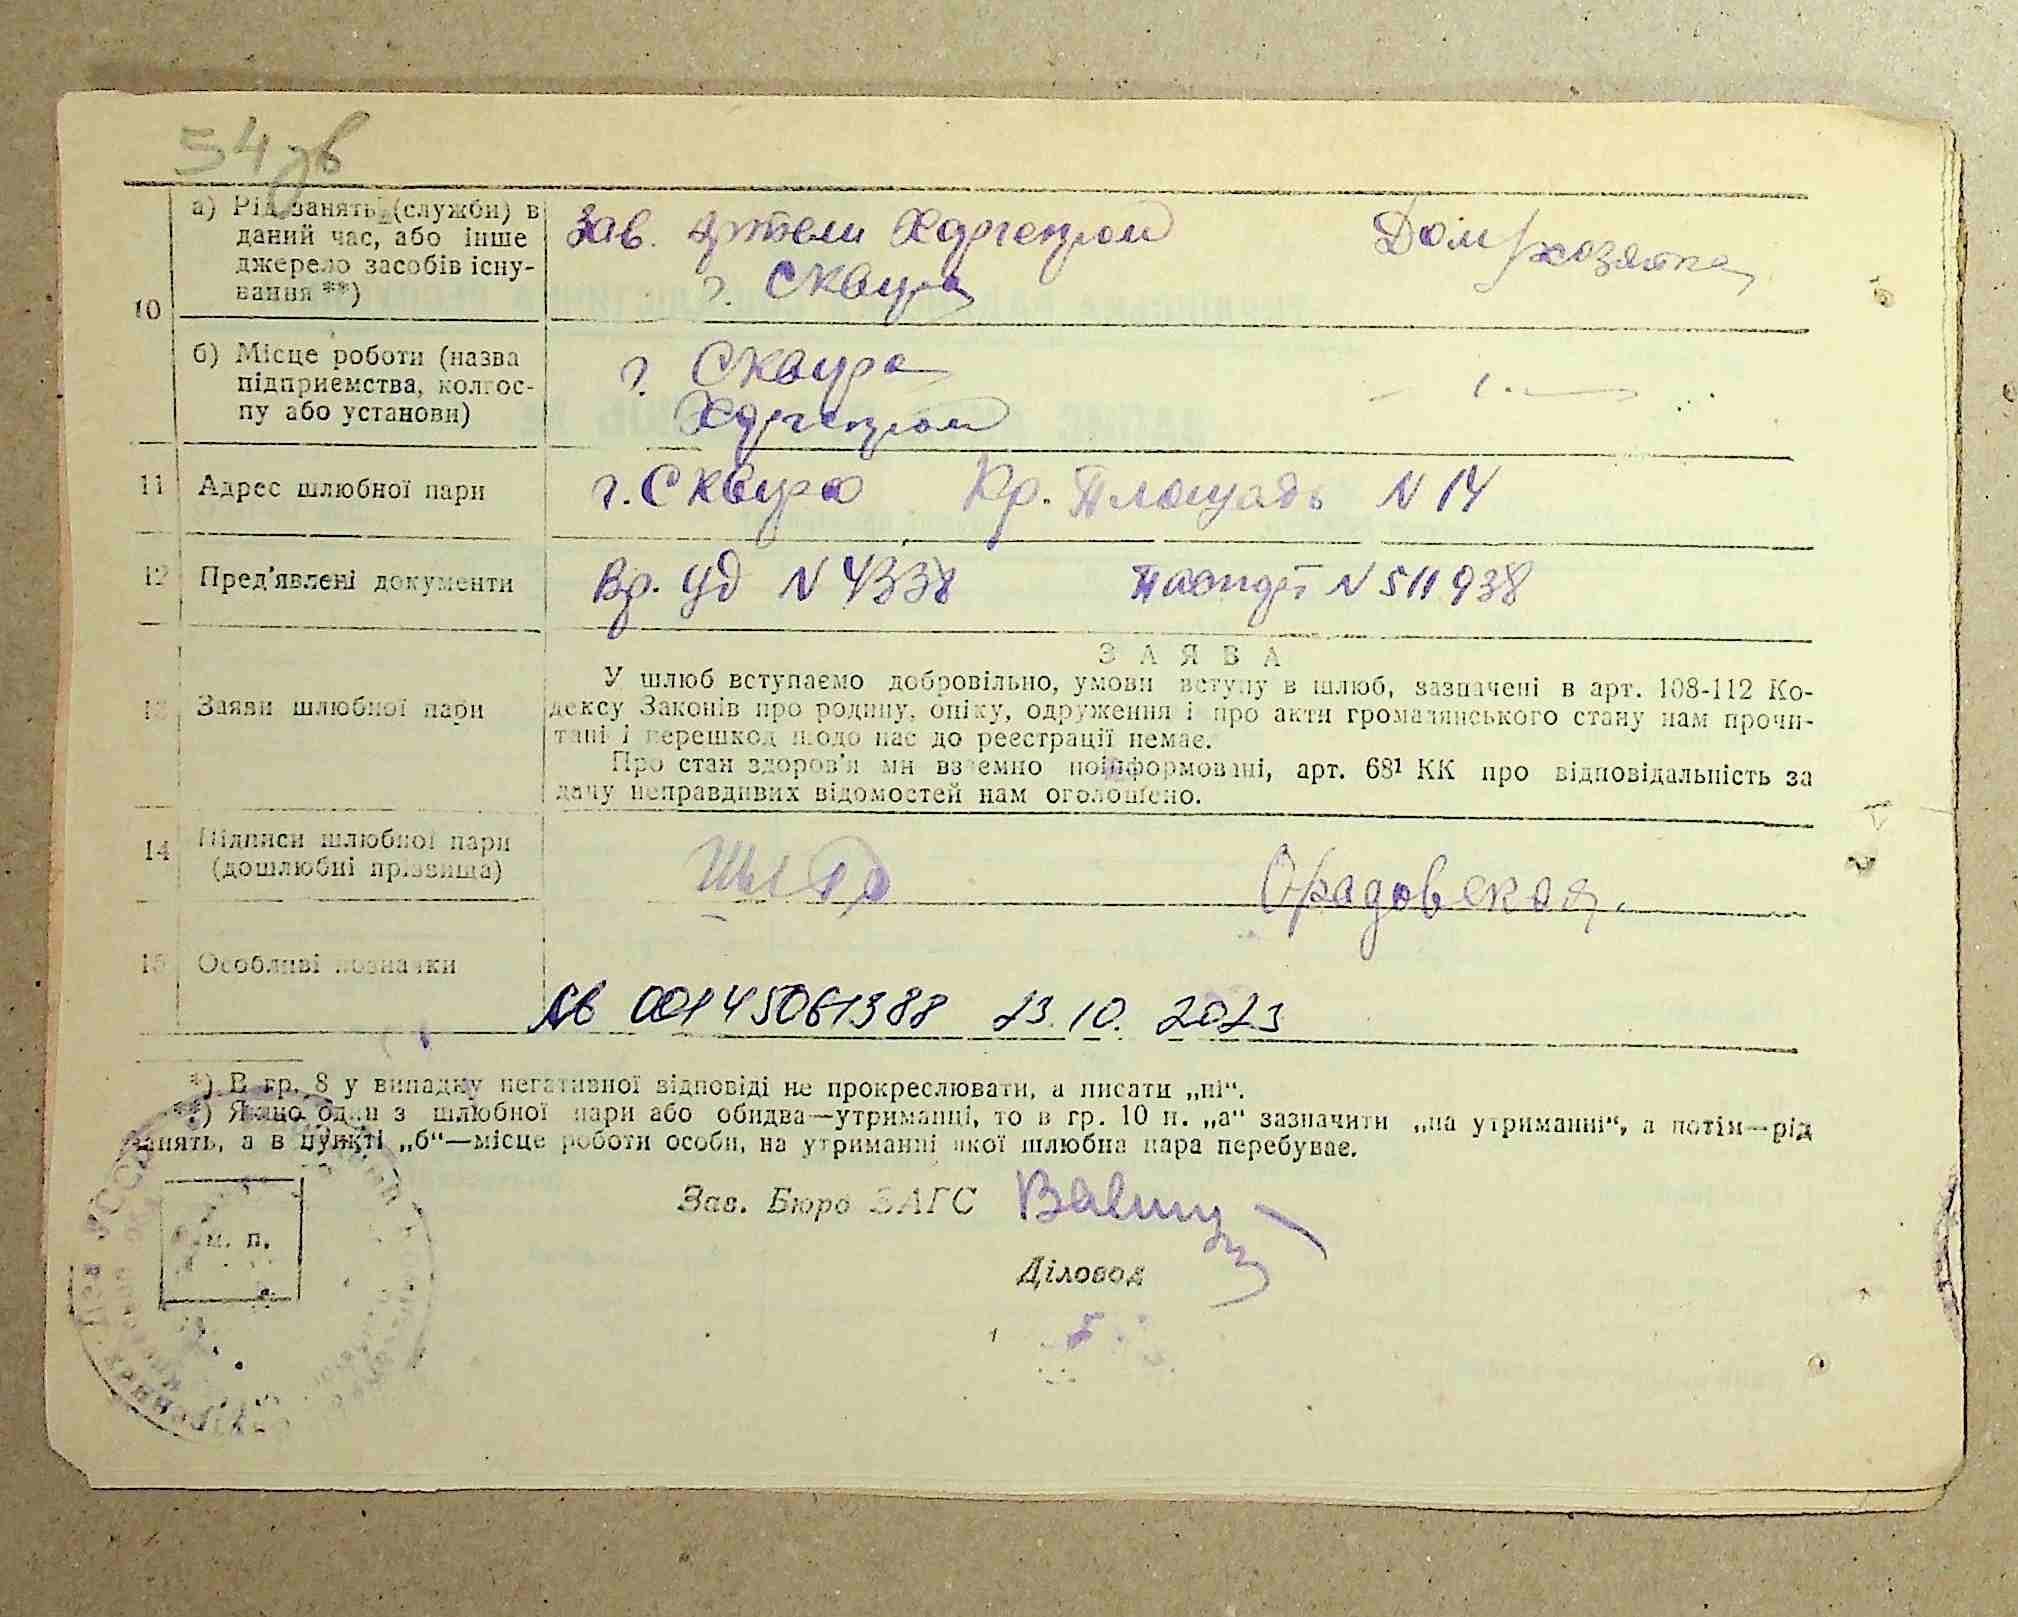 54 зв
а) Рід занять (служби) в
даний час, або інше
джерело засобів існу-
вання **)
10
Зав. артели Харчепром
г. Сквира
Дом/хозяйка
б) Місце роботи (назва
підприємства, колгос-
пу або установи)
г. Сквира
Харчепром
11 Адрес шлюбної пари
г. Сквира Кр. Площадь N 14
12 Пред'явлені документи
Вр. уд N 4338 Паспорт N 511938
13 Заяви шлюбної пари
ЗАЯВА
У шлюб вступаємо добровільно, умови вступу в шлюб, зазначені в арт. 108-112 Ко-
дексу Законів про родину, опіку, одруження і про акти громадянського стану нам прочи-
тані і перешкод щодо нас до реєстрації немає.
Про стан здоров'я ми взаємно поінформовані, арт. 68¹ КК про відповідальність за
дачу неправдивих відомостей нам оголошено.
14 Підписи шлюбної пари
(дошлюбні прізвища)
Орадовская.
15 Особливі позначки
АВ 00145061388 23.10.2023
*) В гр. 8 у випадку негативної відповіді не прокреслювати, а писати „ні“.
**) Якщо один з шлюбної пари або обидва—утриманці, то в гр. 10 п. „а“ зазначити „на утриманні“, а потім—рід
занять, а в пункті „б“—місце роботи особи, на утриманні якої шлюбна пара перебуває.
Зав. Бюро ЗАГС
м. п.
Діловод